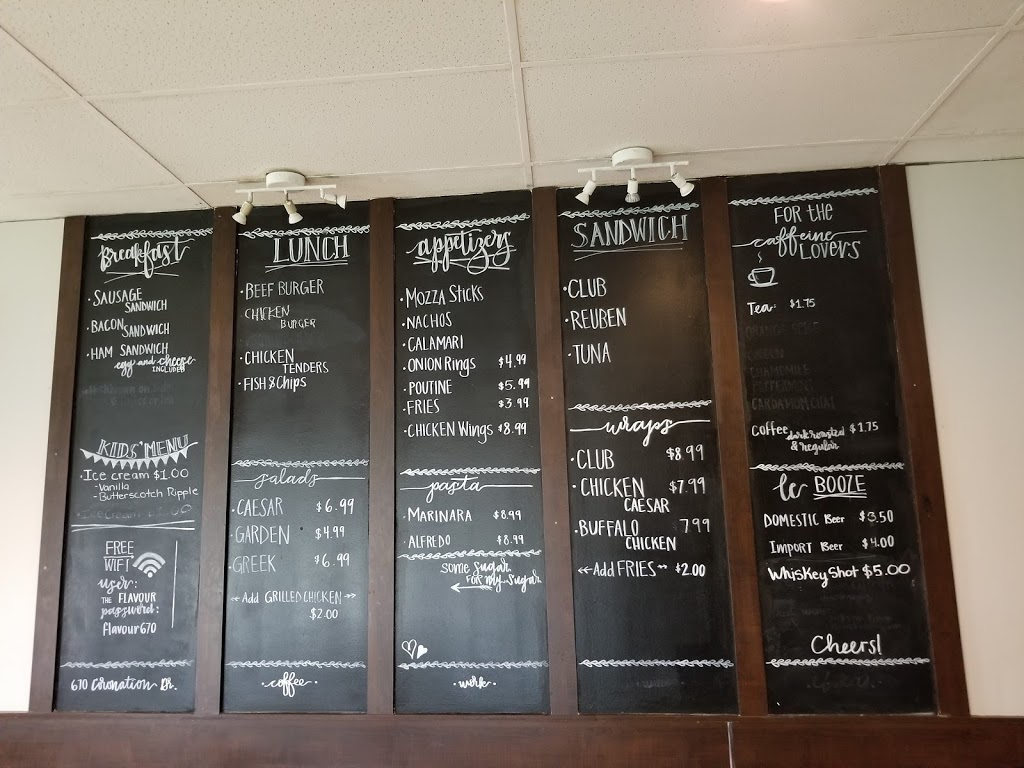 Breakfast
• SAUSAGE
SANDWICH
• BACON SANDWICH
• HAM SANDWICH
egg and cheese
INCLUDED
KIDS' MENU
• Ice cream $1.00
- Vanilla
- Butterscotch Ripple
FREE
WIFI
user:
THE FLAVOUR
password:
flavour670
670 Coronation Dr.
LUNCH
• BEEF BURGER
CHICKEN
BURGER
• CHICKEN
TENDERS
• FISH & Chips
salads
• CAESAR $6.99
• GARDEN $4.99
• GREEK $6.99
Add GRILLED CHICKEN
$2.00
• coffee •
appetizers
• MOZZA STICKS
• NACHOS
• CALAMARI
• ONION Rings $4.99
• POUTINE $5.99
• FRIES $3.99
• CHICKEN Wings $8.99
pasta
• MARINARA $8.99
• ALFREDO $8.99
some sugar
FOR my sugar
• work •
SANDWICH
• CLUB
• REUBEN
• TUNA
wraps
• CLUB $8.99
• CHICKEN $7.99
CAESAR
• BUFFALO 7.99
CHICKEN
Add FRIES $2.00
FOR the
caffeine
LOVERS
Tea: $1.75
CHAMOMILE
PEPPERMINT
CARDAMOM CHAI
Coffee dark roasted $1.75
& regular
le BOOZE
DOMESTIC Beer $3.50
IMPORT Beer $4.00
Whiskey Shot $5.00
Cheers!